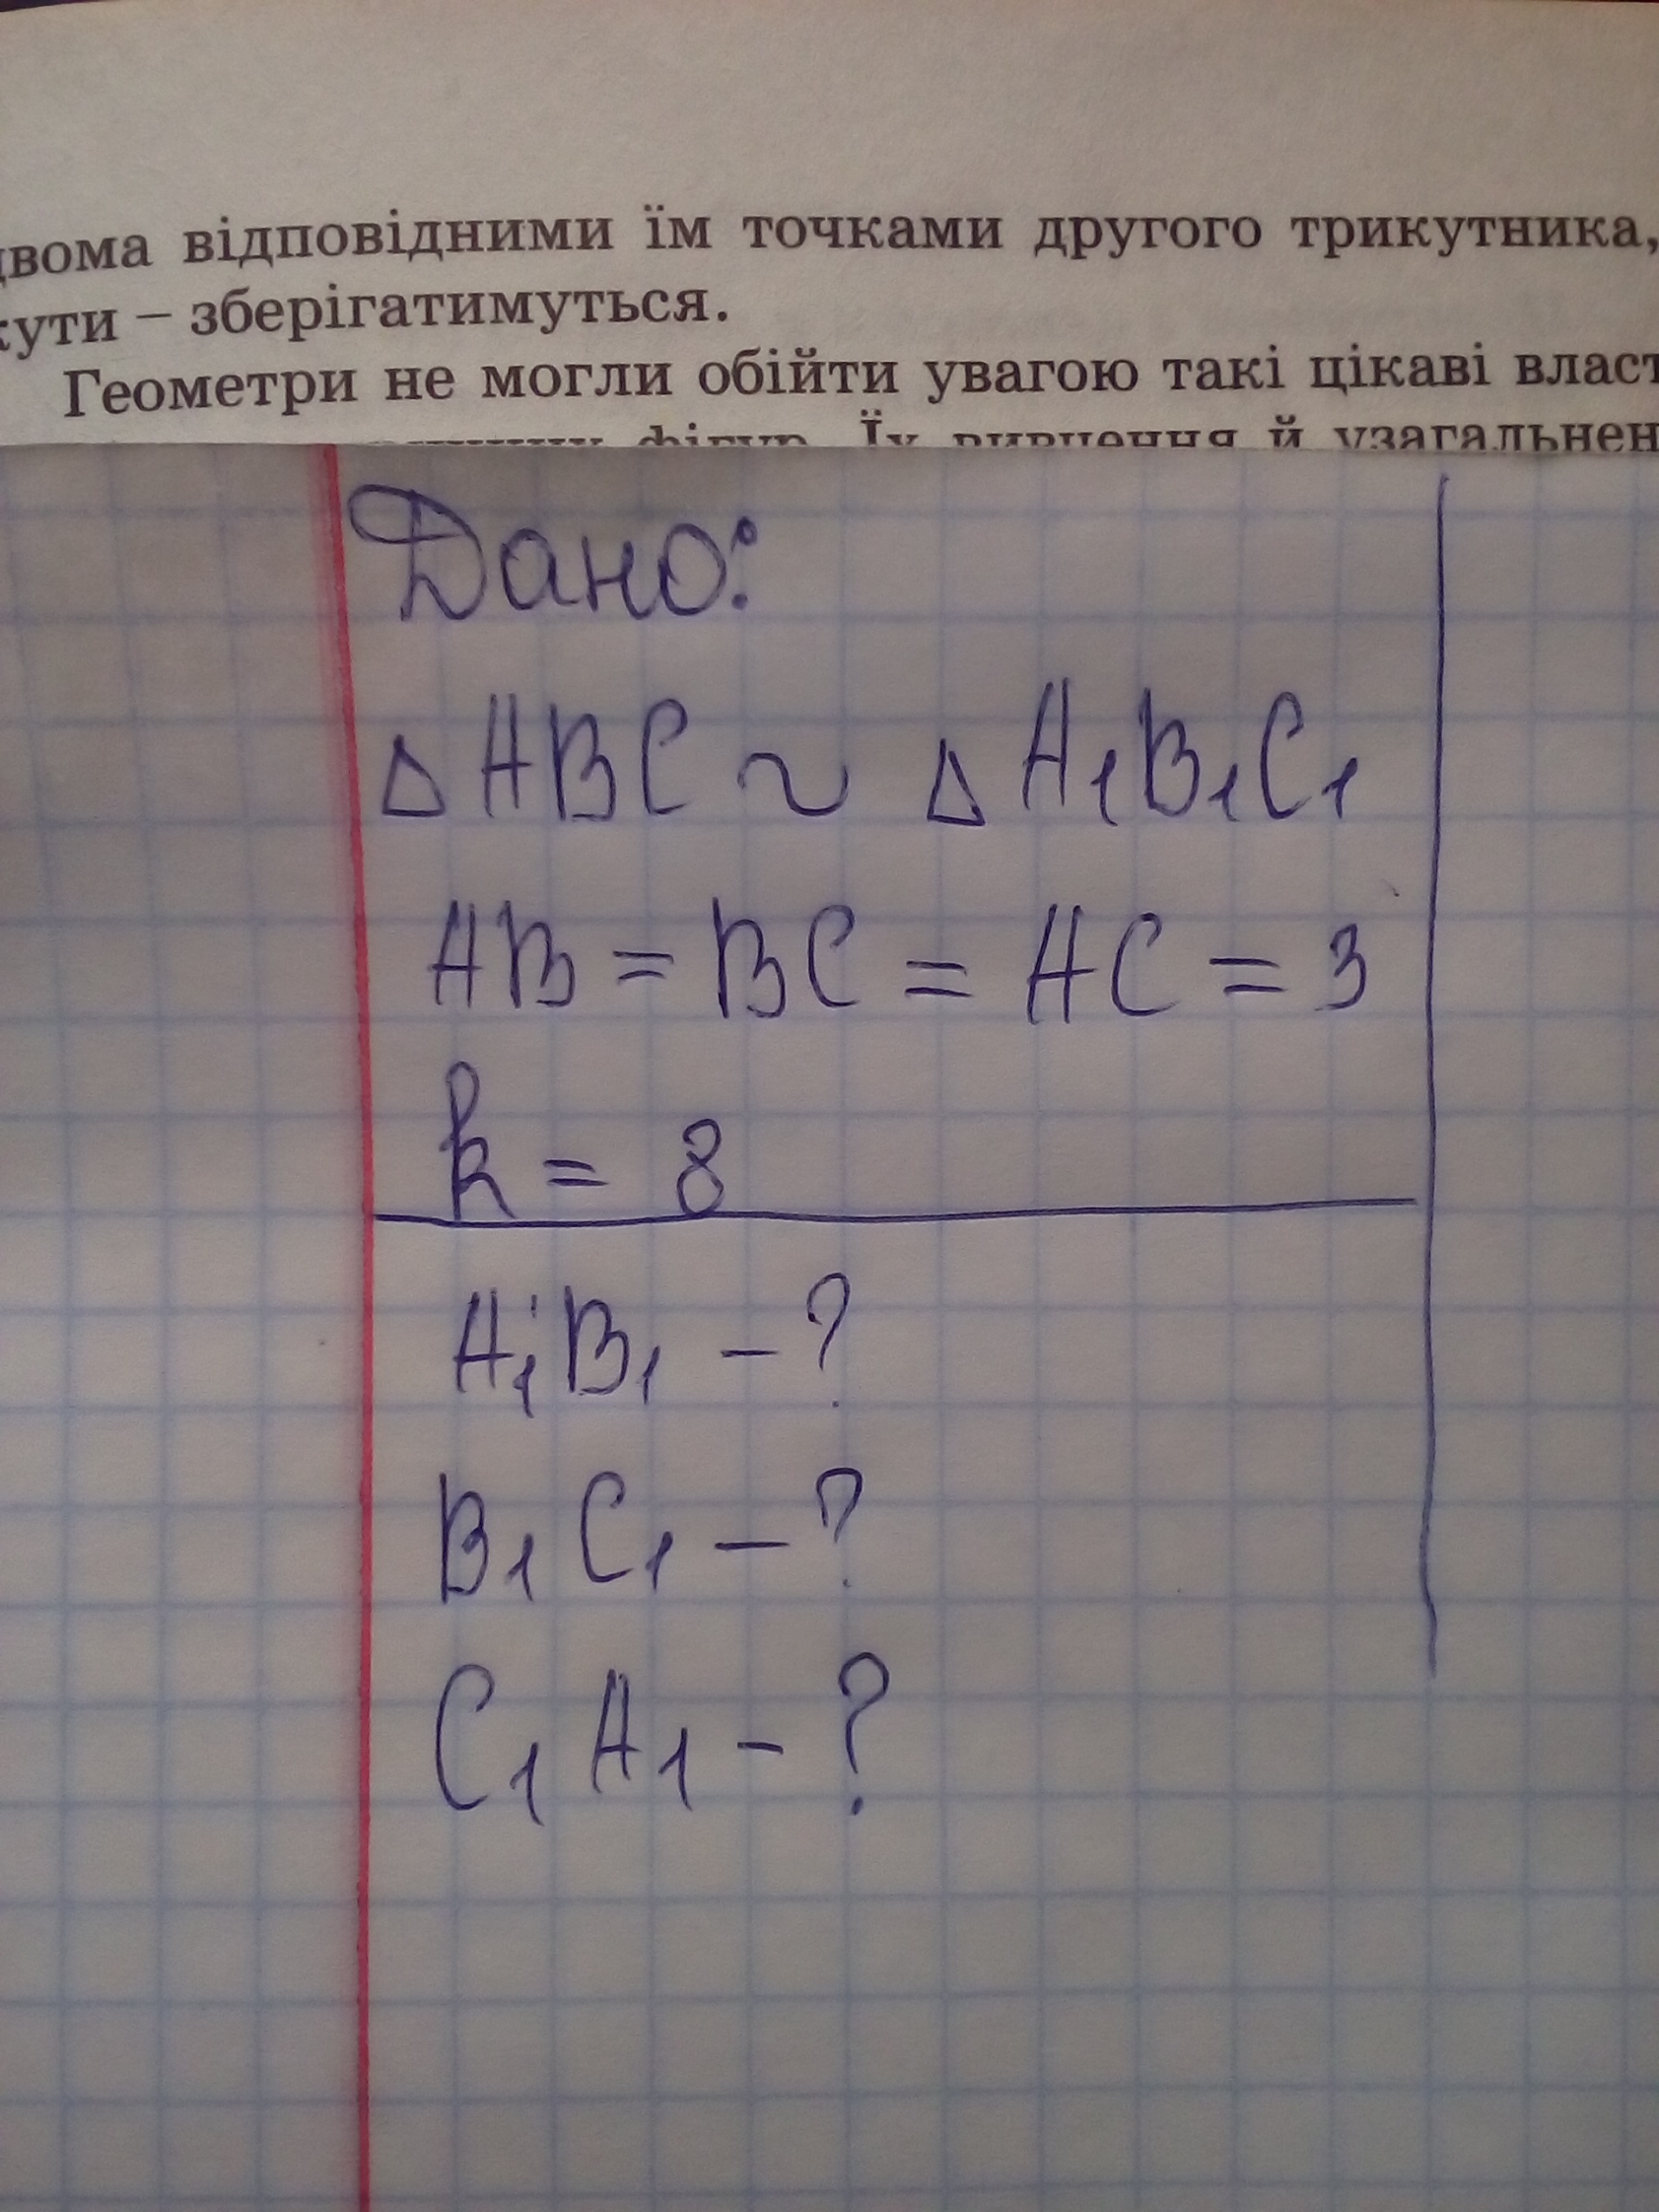 двома відповідними їм точками другого трикутника,
кути – зберігатимуться.
Геометри не могли обійти увагою такі цікаві власт
фігур. Їх вивчення й узагальнен
Дано:
△ABC ~ △A₁B₁C₁
AB = BC = AC = 3
k = 8
A₁B₁ – ?
B₁C₁ – ?
C₁A₁ – ?